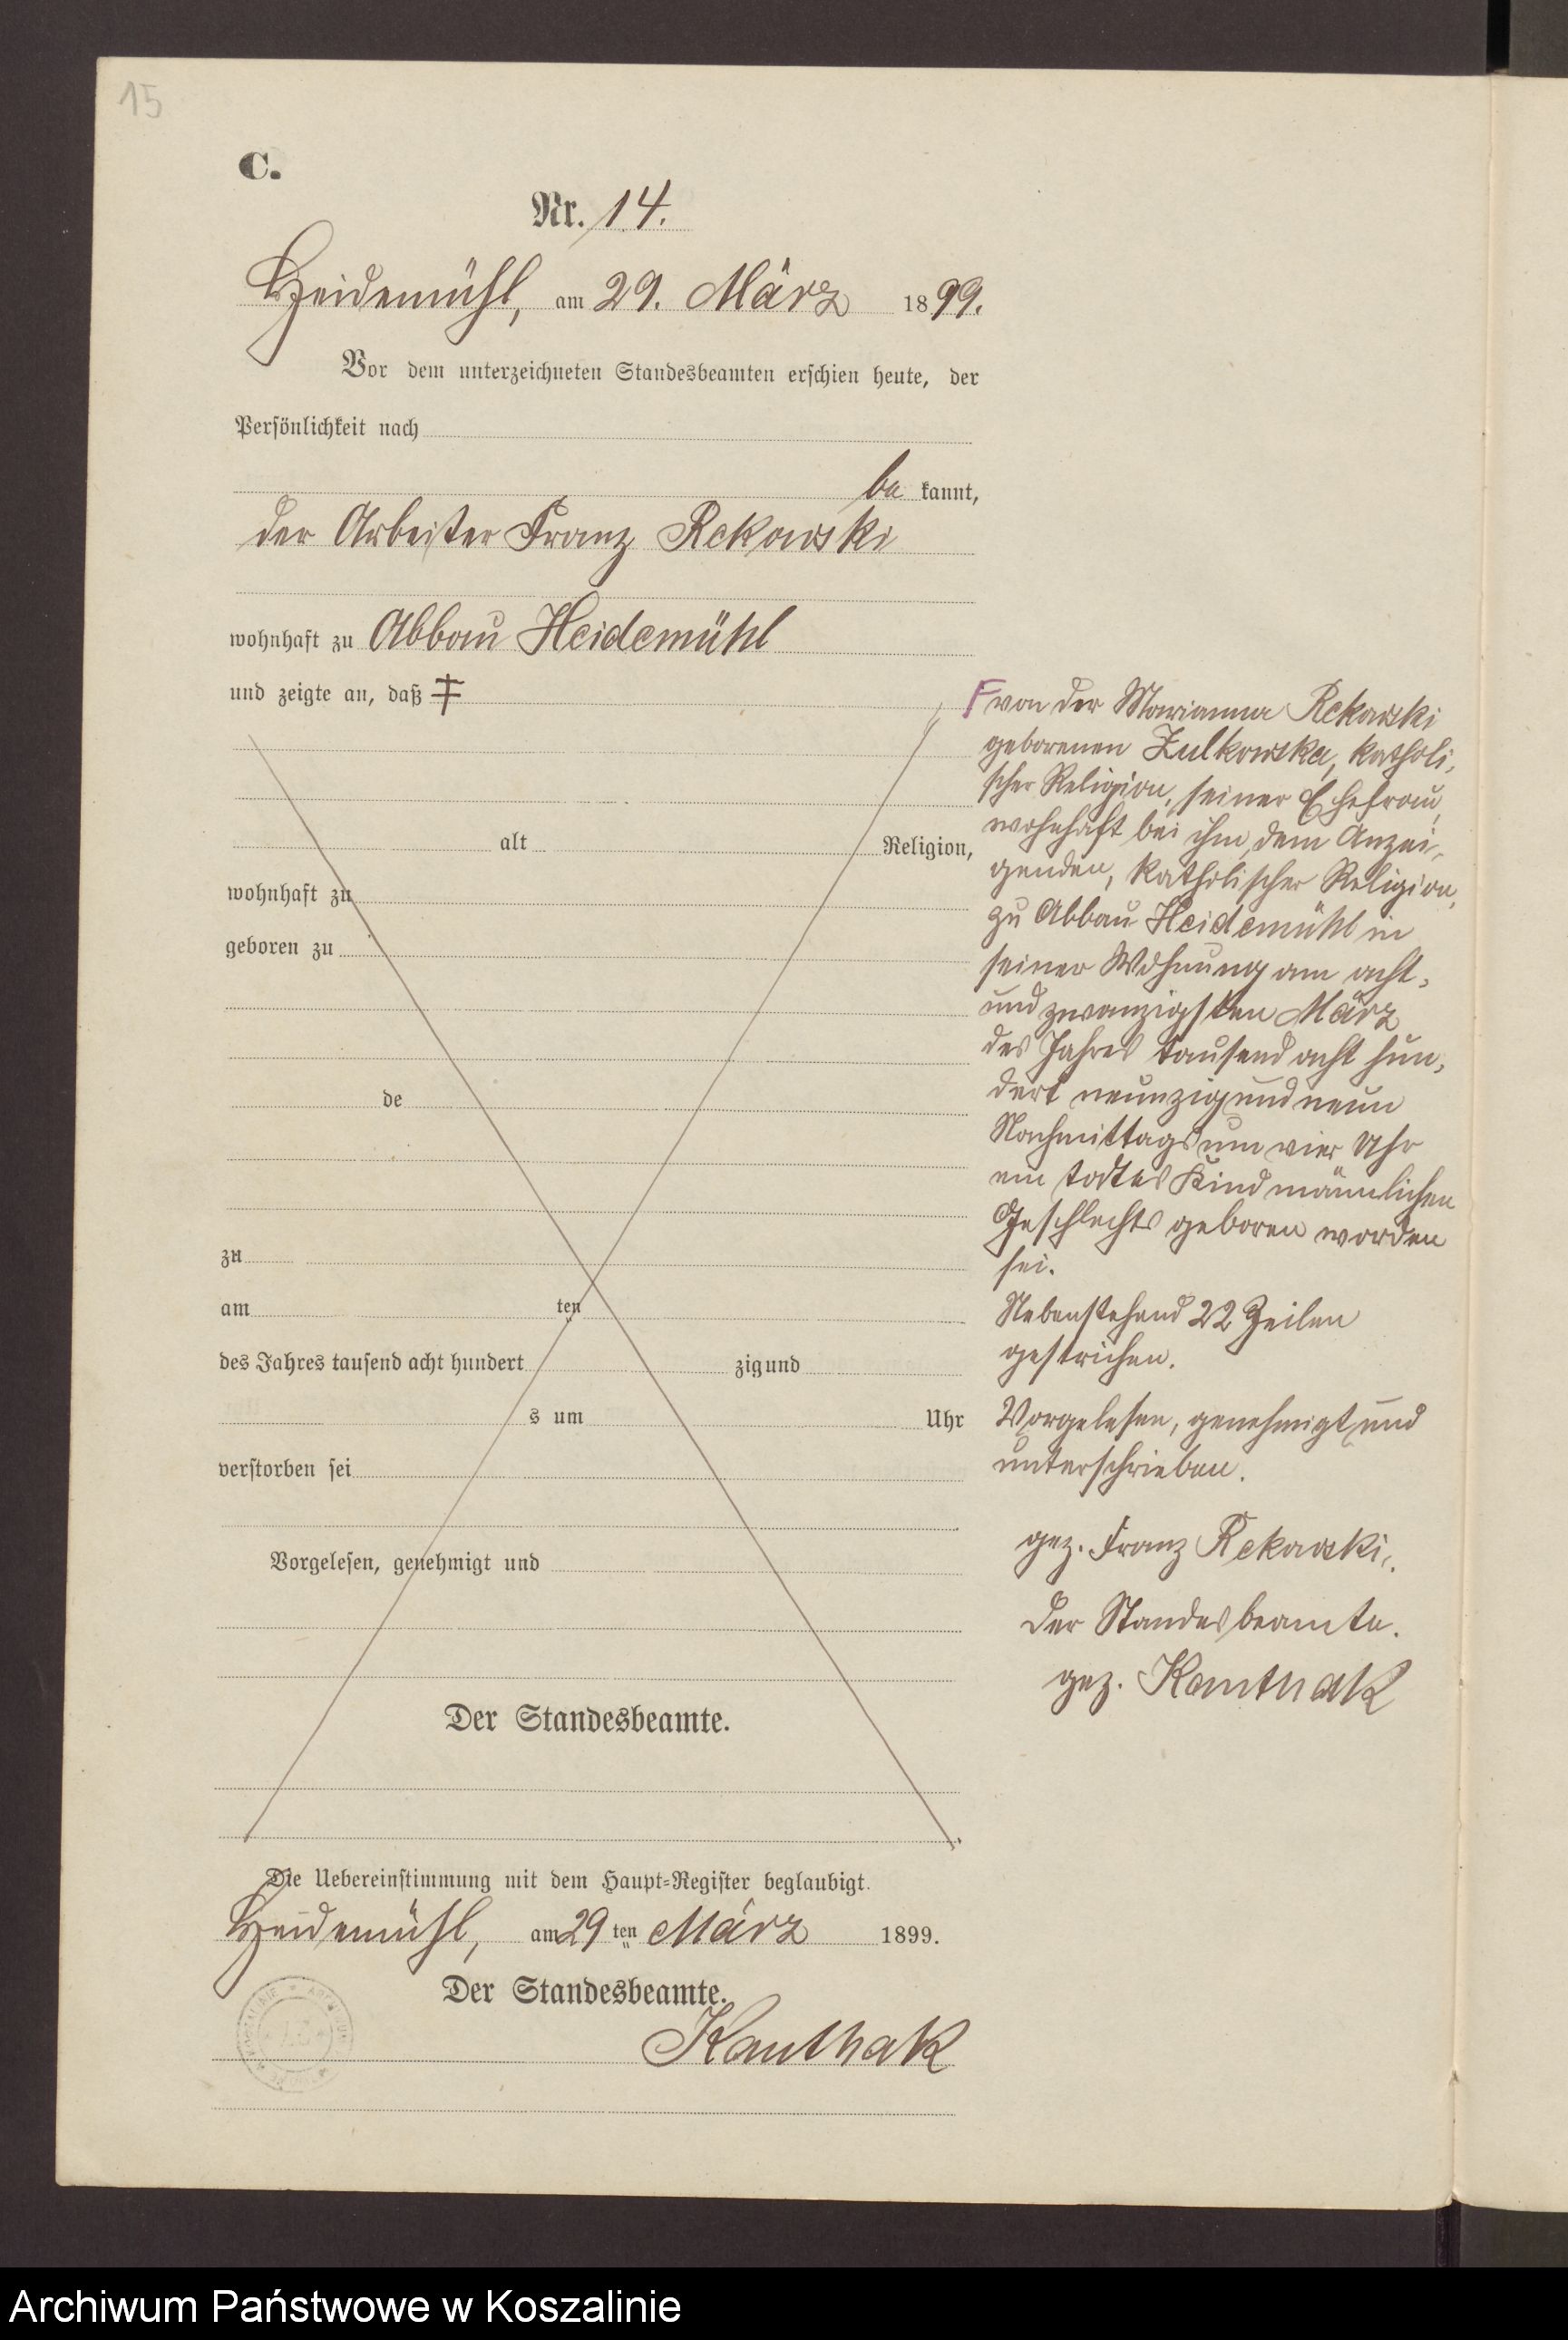 15
C.
Nr. 14.
Heidemühl, am 29. März 1899.
Vor dem unterzeichneten Standesbeamten erschien heute, der
Persönlichkeit nach
be kannt,
der Arbeiter Franz Rekowski
wohnhaft zu Abbau Heidemühl
und zeigte an, daß ‡
alt Religion,
wohnhaft zu
geboren zu
de
zu
am ten
des Jahres tausend acht hundert zig und
s um Uhr
verstorben sei
Vorgelesen, genehmigt und
Der Standesbeamte.
von der Marianna Rekowski
geborenen Zulkowska, katholi-
scher Religion, seiner Ehefrau,
wohnhaft bei ihm, dem Anzei-
genden, katholischer Religion,
zu Abbau Heidemühl in
seiner Wohnung am acht-
und zwanzigsten März
des Jahres tausend acht hun-
dert neunzig und neun
Nachmittags um vier Uhr
ein todtes Kind männlichen
Geschlechts geboren worden
sei.
Nebenstehend 22 Zeilen
gestrichen.
Vorgelesen, genehmigt und
unterschrieben.
gez. Franz Rekowski.
Der Standesbeamte.
gez. Kanthak
Die Uebereinstimmung mit dem Haupt-Register beglaubigt.
Heidemühl, am 29 ten März 1899.
Der Standesbeamte.
Kanthak
Archiwum Państwowe w Koszalinie